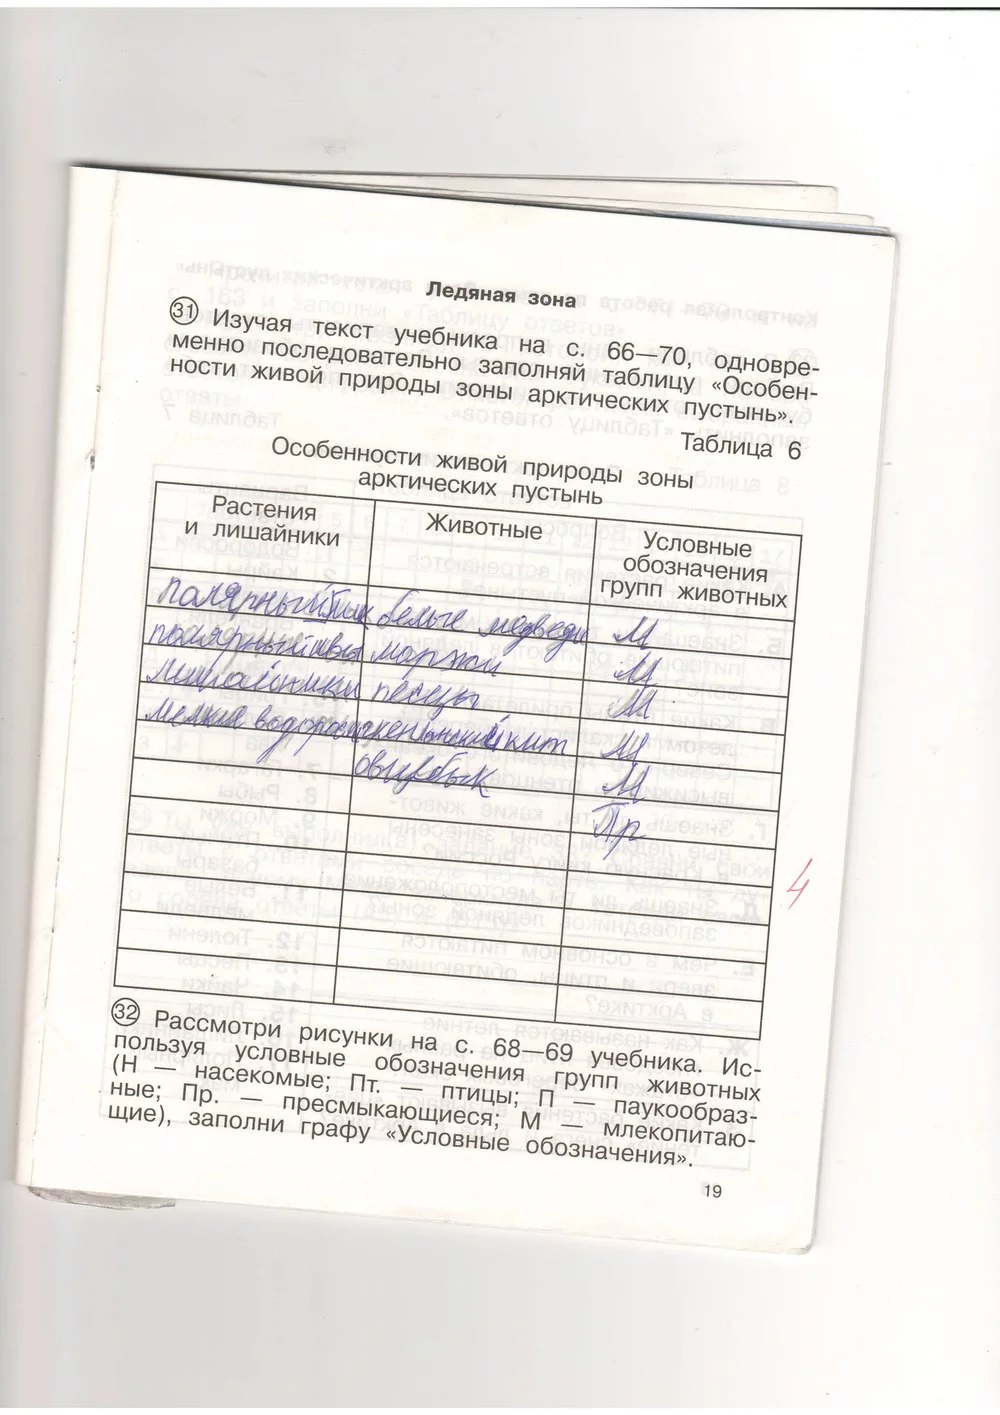 Ледяная зона
31 Изучая текст учебника на с. 66—70, одновре-
менно последовательно заполняй таблицу «Особен-
ности живой природы зоны арктических пустынь».
Таблица 6
Особенности живой природы зоны
арктических пустынь
Растения
и лишайники
Животные
Условные
обозначения
групп животных
полярный мак белые медведи М
полярный ивы моржи М
лишайники песцы М
мелкие водоросли кит М
овцебык М
Пр
4
32 Рассмотри рисунки на с. 68—69 учебника. Ис-
пользуя условные обозначения групп животных
(Н — насекомые; Пт. — птицы; П — паукообраз-
ные; Пр. — пресмыкающиеся; М — млекопитаю-
щие), заполни графу «Условные обозначения».
19